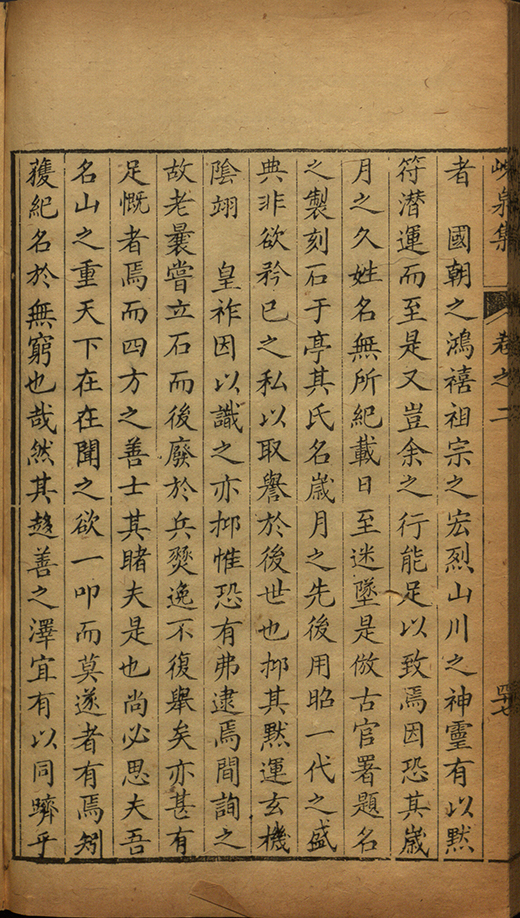 峴泉集 卷之二 四十七
者　國朝之鴻禧祖宗之宏烈山川之神靈有以黙
符潜運而至是又豈余之行能足以致焉因恐其歲
月之久姓名無所紀載日至迷墜是倣古官署題名
之製刻石于亭其氏名歲月之先後用昭一代之盛
典非欲矜已之私以取譽於後世也抑其黙運玄機
陰翊　皇祚因以識之亦抑惟恐有弗逮焉間詢之
故老曩嘗立石而後廢於兵燹逸不復舉矣亦甚有
足慨者焉而四方之善士其睹夫是也尚必思夫吾
名山之重天下在在聞之欲一叩而莫遂者有焉矧
獲紀名於無窮也哉然其趍善之澤宜有以同躋乎